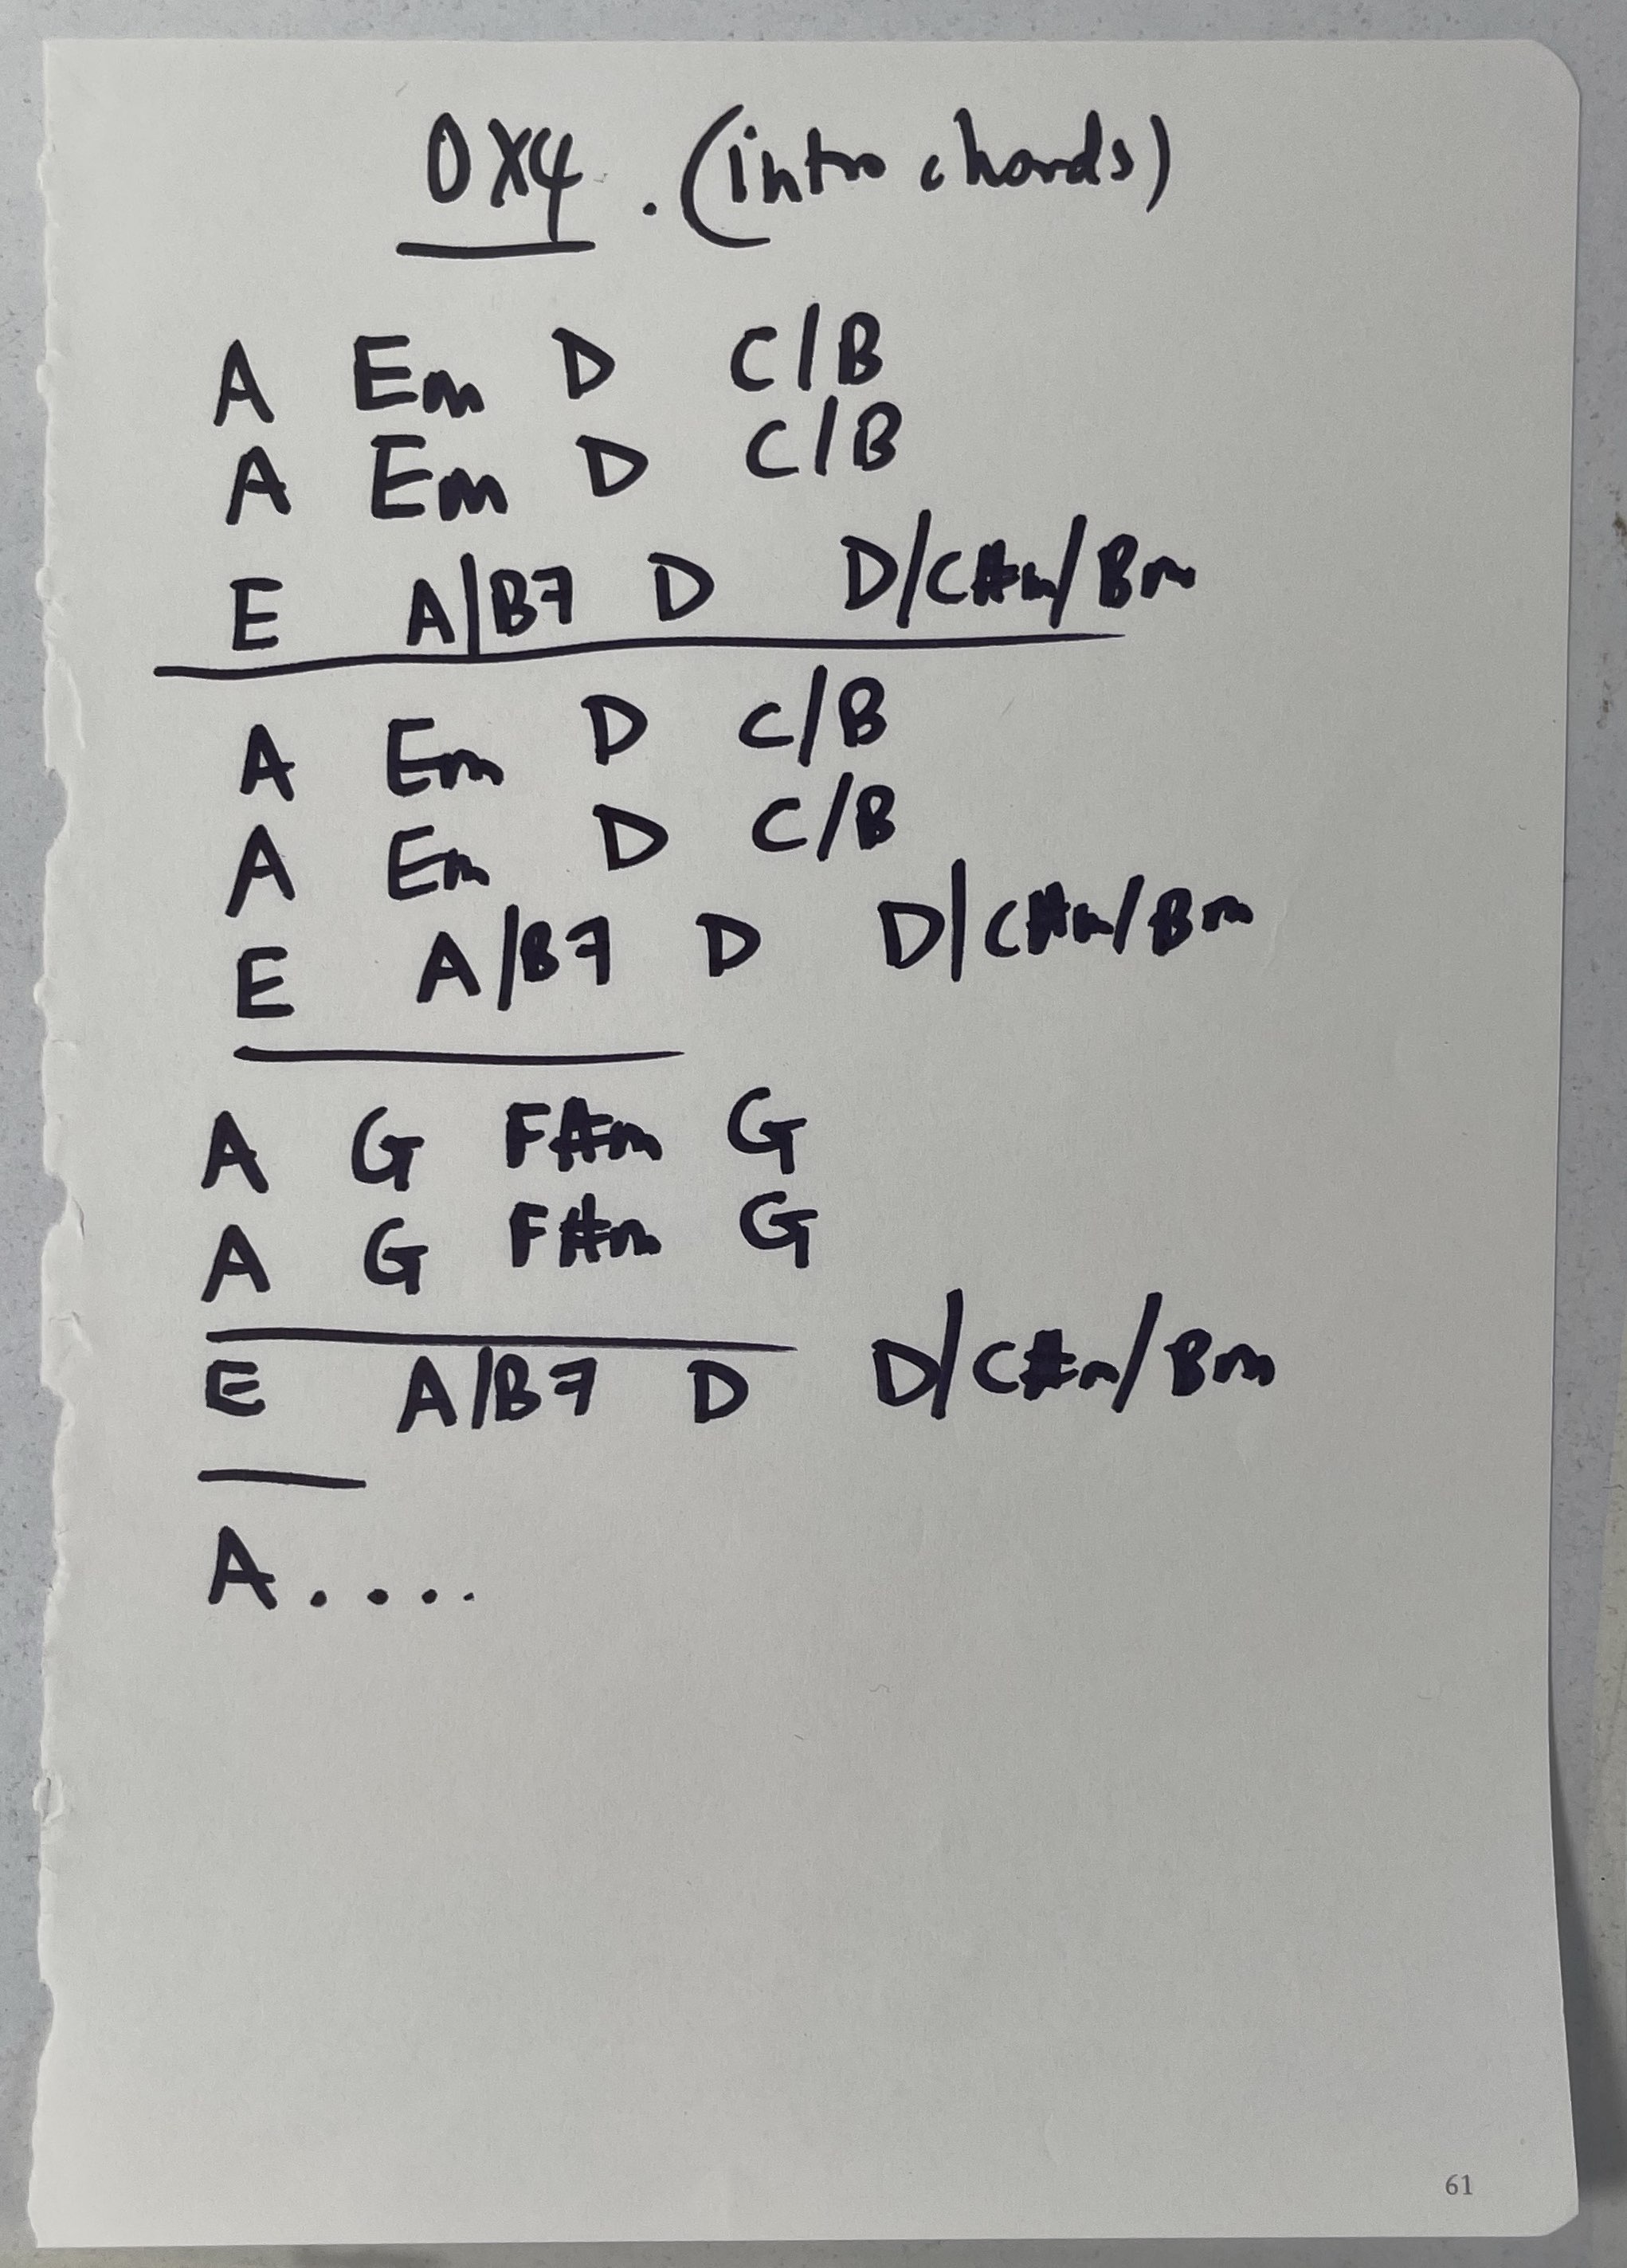 OX4 . (intro chords)
A Em D C/B
A Em D C/B
E A/B7 D D/C#m/Bm
A Em D C/B
A Em D C/B
E A/B7 D D/C#m/Bm
A G F#m G
A G F#m G
E A/B7 D D/C#m/Bm
A....
61